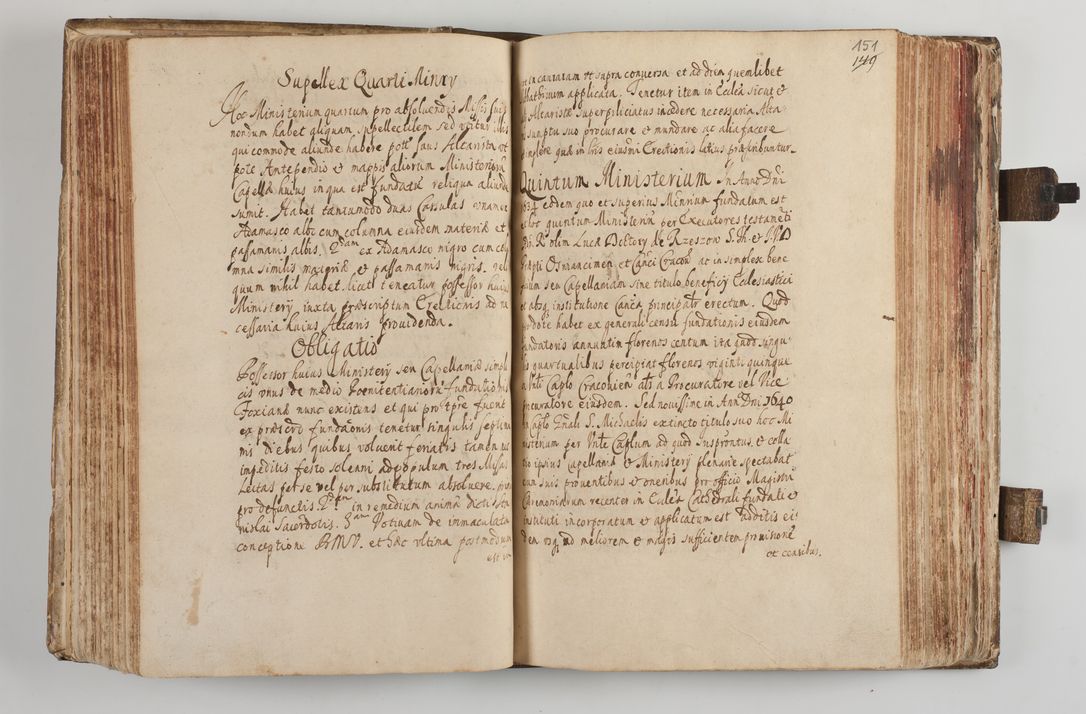 Supellex Quarti Minrÿ
Hoc Ministerium quartum pro absoluendis Missis suis
nondum habet aliquam supellectilem sed vtitur illis
qui commode aliunde habere pott̃ suus Altarista vt
pote Antependio et mappis aliorum Ministeriorũ
Capellæ huius in qua est fundatũ reliqua aliunde
sumit. Habet tantummodo duas Casulas vnam ex
Adamasco albo cum columna eiusdem materiæ et
passamanis albis. 2dam ex Adamasco nigro cum colũ
mna similis materiæ, et passamanis nigris. reli
quum nihil habet. licet teneatur possessor huius
Ministerÿ iuxta præscriptum Erectionis ad ne
cessaria huius Altaris prouidenda.
Obligatio
Possessor huius Ministerÿ seu Capellaniæ simpli
cis vnus de medio Poenitentiariorũ fundationis
Foxianæ nunc existens et qui pro tp̃re fuerit
ex præscrõ fundaõnis tenetur singulis septima
nis diebus quibus voluerit feriatis tamen
impeditis festo solenni ad populum tres Missas
Lectas per se vel per substitutum absoluere.
pro defunctis 2dam in remedium animæ dicti Sta
nislai Sacerdotis. 3am Votiuam de immaculata
conceptione BMV. et hæc vltima postmodum
est
151
149
in cantatam vt supra conuersa et ad diem quemlibet
applicata. Tenetur item in Ecclĩa sicut et
Altaristæ superpiliciatus incedere necessaria Alta
sumptu suo procurare et mundare ac alia facere
implere quæ in lr̃is eiusm̃i Erectionis latius præscribuntur
Quintum Ministerium In Anno Dñi
1634 eodem quo et superius Minrium fundatum est
hoc quintum Ministeriũ per Executores testamẽti
R. olim Lucæ Doctorÿ de Rzeszow S. Th. et I.V.D
Præpti Osuiancimen. et Canĉi Cracoũ ac in simplex bene
cium seu Capellaniam sine titulo beneficÿ Ecclesiastici
et absq; institutione Canĉa principalr̃ erectum. Quod
dote habet ex generali censu fundationis eiusdem
fundatoris annuatim florenos centum ita quod singu
lis quartualibus percipiat florenos viginti quinque
a Vnli Caplo Cracohieñ als a Procuratore vel Vice
procuratore eiusdem. Sed nouissime in Anno Dñi 1640
in Caplo Gñali S. Michaelis extincto titulo suo hoc Mi
nisterium per Vnle Caplum ad quod Iuspr̃ontus. et colla
tio ipsius capellaniæ et Ministerÿ plenarie spectabat
cum suis prouentibus et oneribus pro officio Magistri
Cæremoniarum recenter in Ecclĩa Cathedrali fundati et
instituti incorporatum et applicatum est additis ei
dem rõq; ad meliorem et magis sufficientem prouisionẽ
et censibus.